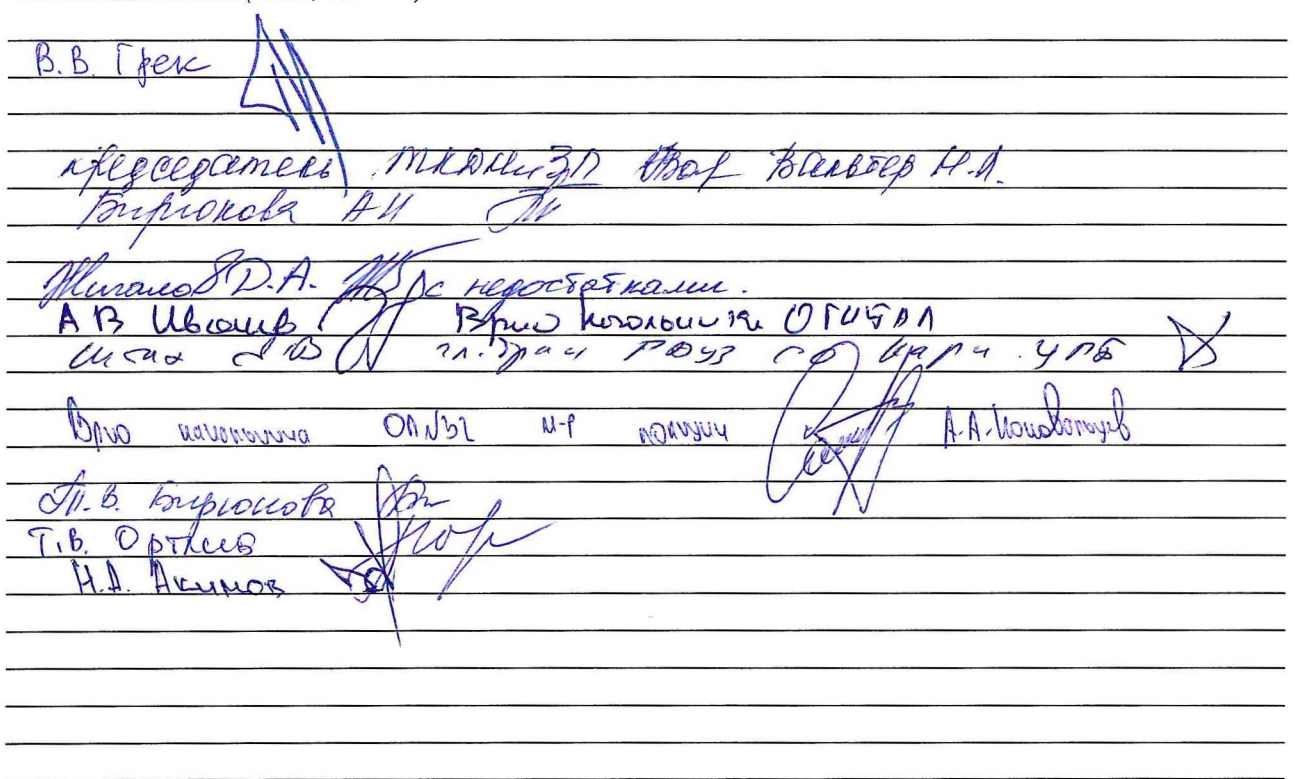 В.В. Грек
председатель ТКДНиЗП Вальтер Н.А.
Бирюкова А И
Жигалов Д.А. с недостатками.
А В Иванов Врио начальника
гл. врач ГБУЗ СО ЦРБ
Врио начальника ОП №32 м-р полиции А.А. Коновальцев
Т.В. Бирюкова
Т.В.
Н.А. Акимов